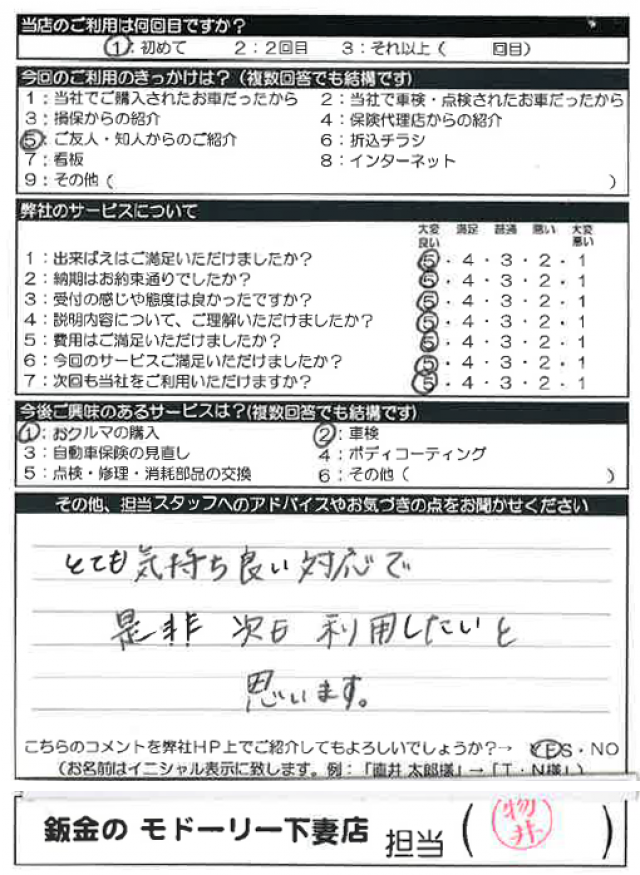 当店のご利用は何回目ですか？
1：初めて　2：2回目　3：それ以上（　　回目）
今回のご利用のきっかけは？（複数回答でも結構です）
1：当社でご購入されたお車だったから　2：当社で車検・点検されたお車だったから
3：損保からの紹介　4：保険代理店からの紹介
5：ご友人・知人からのご紹介　6：折込チラシ
7：看板　8：インターネット
9：その他（　　）
弊社のサービスについて
大変良い　満足　普通　悪い　大変悪い
1：出来ばえはご満足いただけましたか？　5・4・3・2・1
2：納期はお約束通りでしたか？　5・4・3・2・1
3：受付の感じや態度は良かったですか？　5・4・3・2・1
4：説明内容について、ご理解いただけましたか？　5・4・3・2・1
5：費用はご満足いただけましたか？　5・4・3・2・1
6：今回のサービスご満足いただけましたか？　5・4・3・2・1
7：次回も当社をご利用いただけますか？　5・4・3・2・1
今後ご興味のあるサービスは？（複数回答でも結構です）
1：おクルマの購入　2：車検
3：自動車保険の見直し　4：ボディコーティング
5：点検・修理・消耗部品の交換　6：その他（　　）
その他、担当スタッフへのアドバイスやお気づきの点をお聞かせください
とても気持ち良い対応で
是非 次も 利用したいと
思います。
こちらのコメントを弊社HP上でご紹介してもよろしいでしょうか？→　YES・NO
（お名前はイニシャル表示に致します。例：「直井 太郎様」→「T・N様」）
鈑金の モドーリー下妻店　担当（　　）